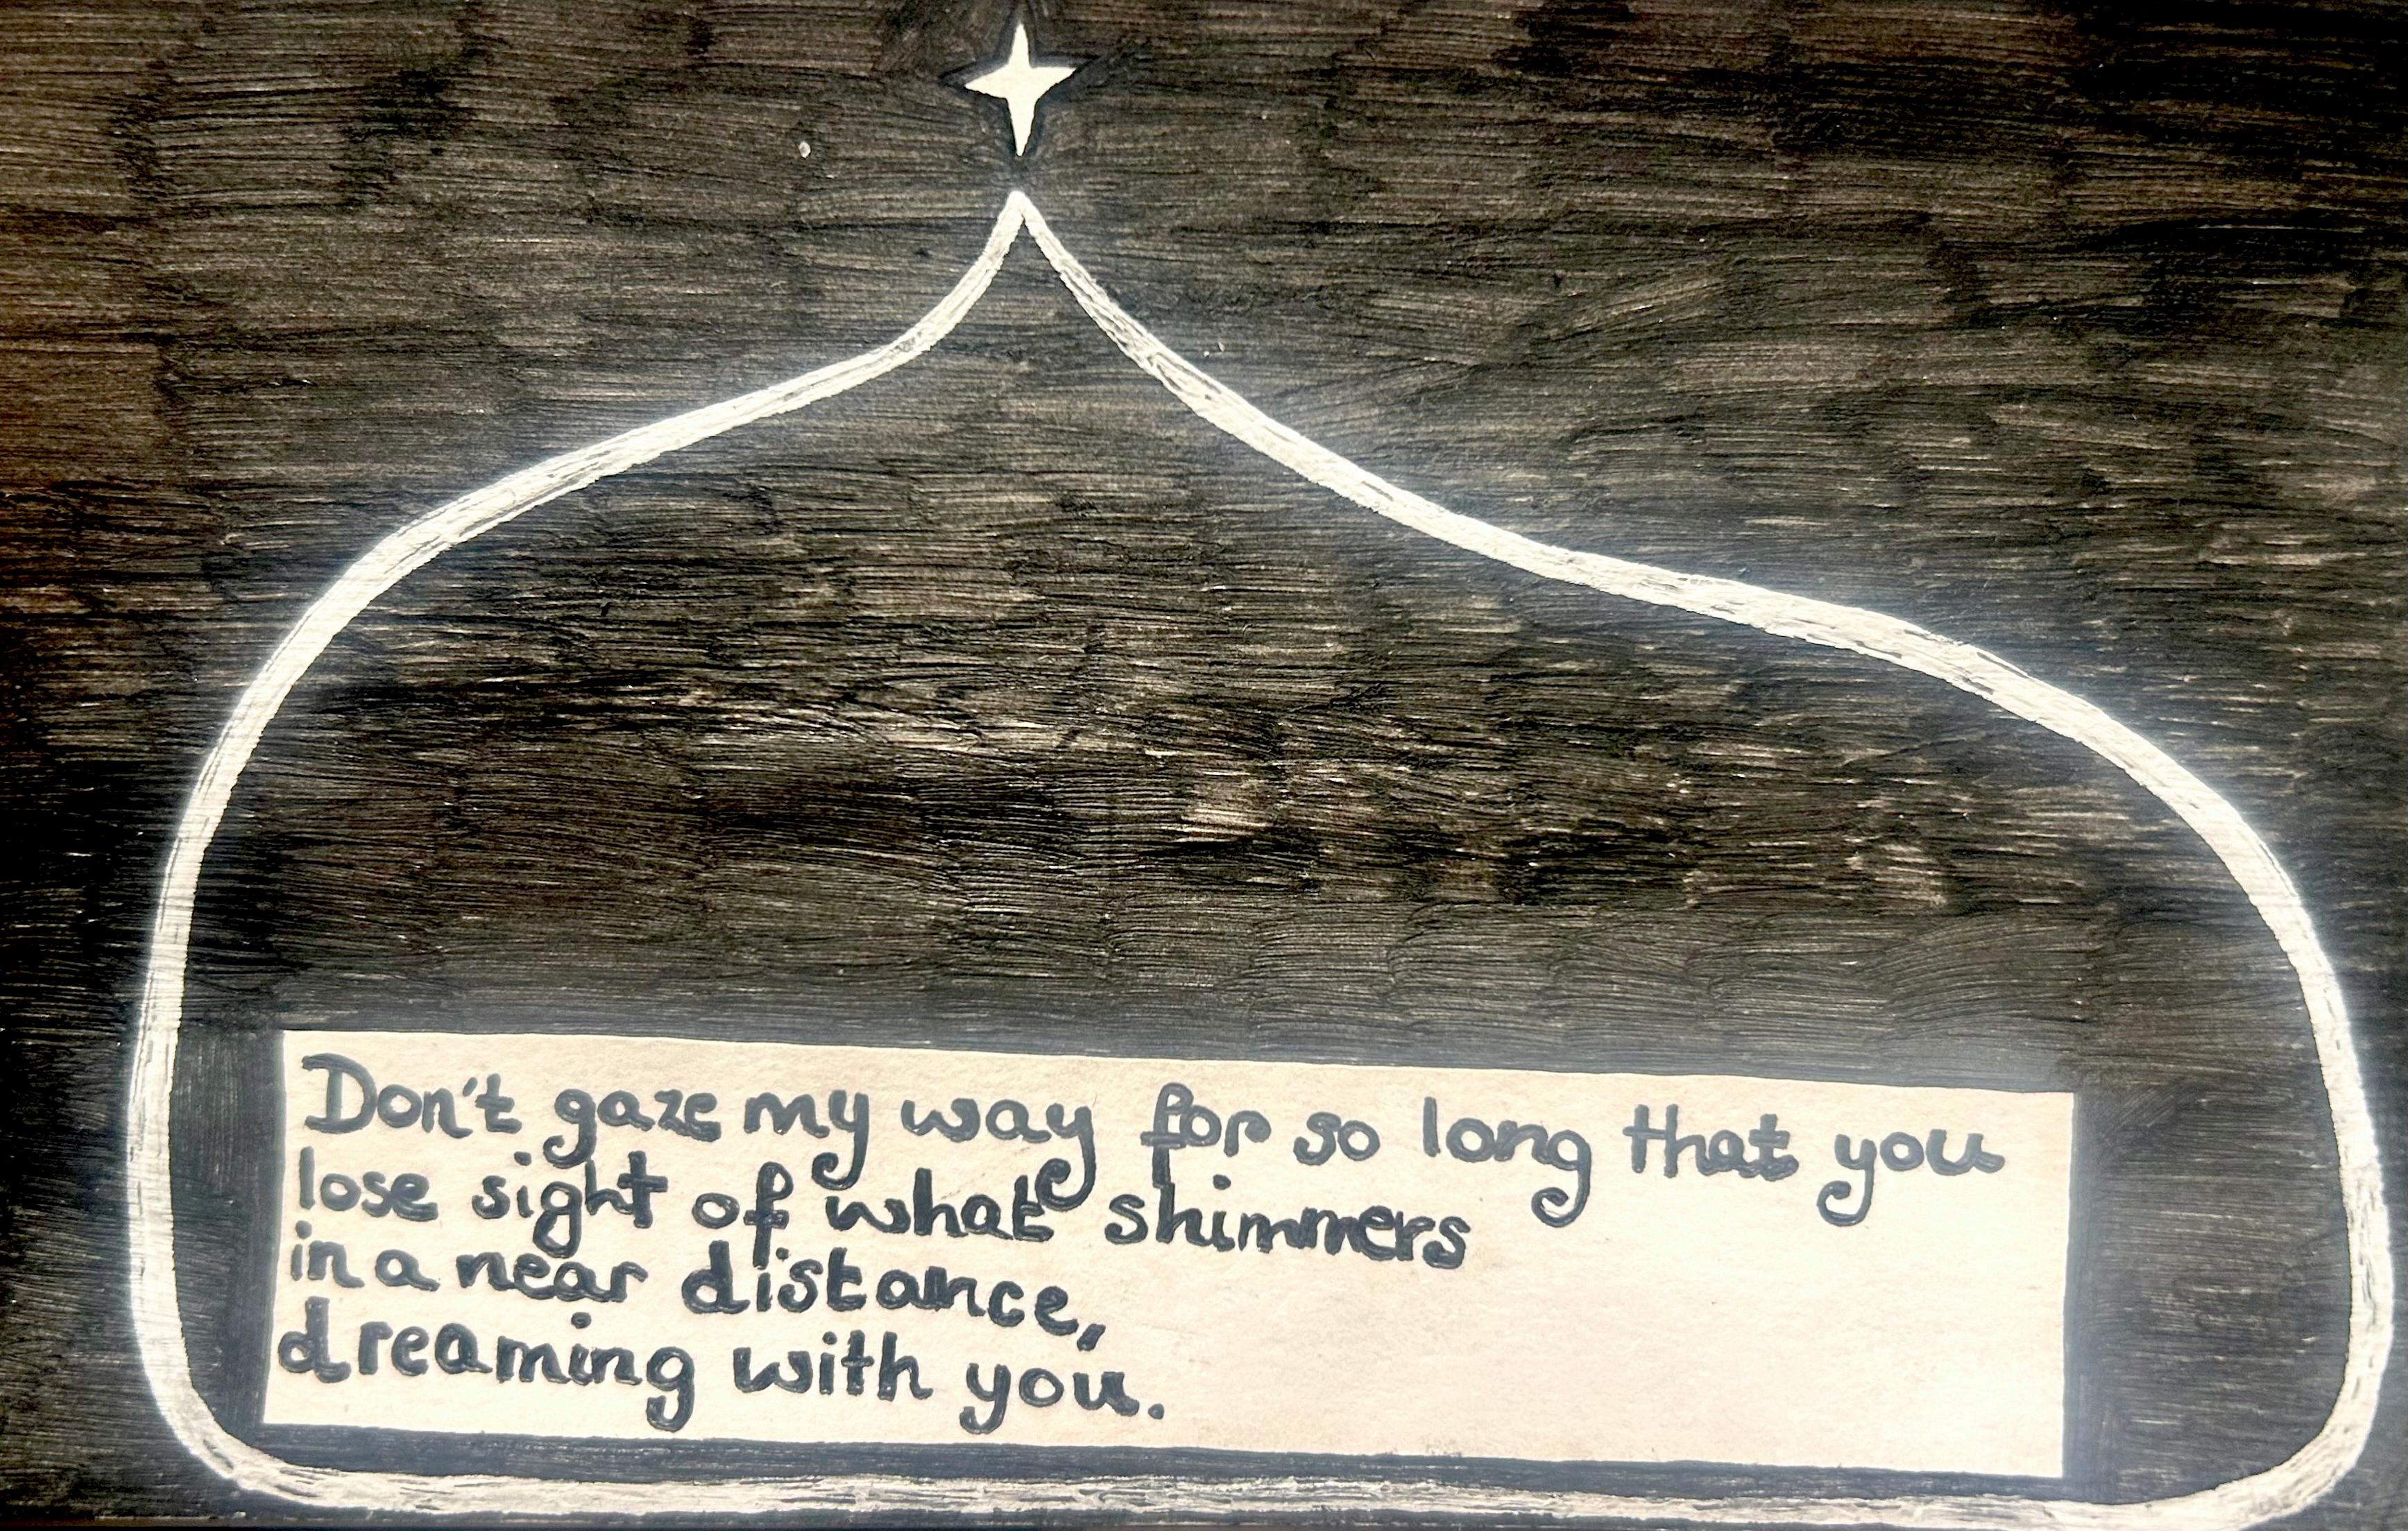 Don't gaze my way for so long that you
lose sight of what shimmers
in a near distance,
dreaming with you.